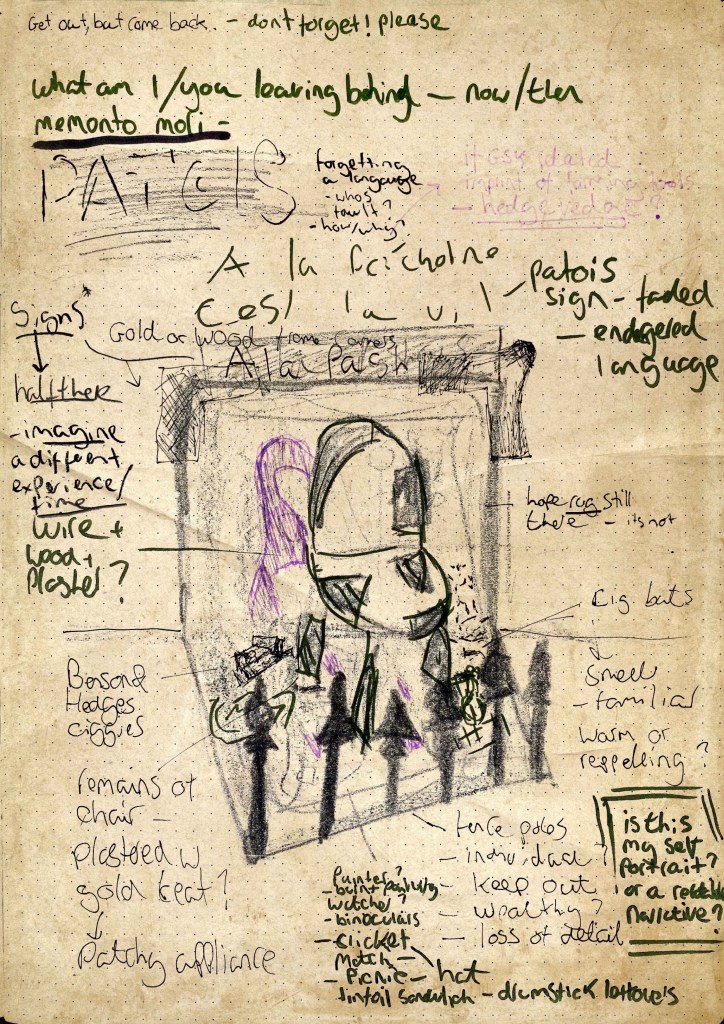 Get out, but come back. - don't forget! please
what am I/you leaving behind - now/then
memento mori -
PATOIS
forgetting
a language
- whos
fault?
- how/why?
- hedge
A la
C'est la vi
patois
sign - faded
- endagered
language
Signs*
Gold or wood frame corners
A la
half there
- imagine
a different
experience/
time
wire +
wood +
plaster?
hope rug still
there - its not
Cig. buts
smell
- familiar
warm or
reppelling?
Benson &
Hedges
ciggies
remains of
chair -
plastered w
gold leaf?
Patchy appliance
fence poles
- individual?
- keep out
- wealthy?
- loss of detail
is this
my self
portrait?
or a
narrative?
Painter?
watcher?
- binoculars
- cricket
match
- picnic - hat
tinfoil sandwich - drumstick